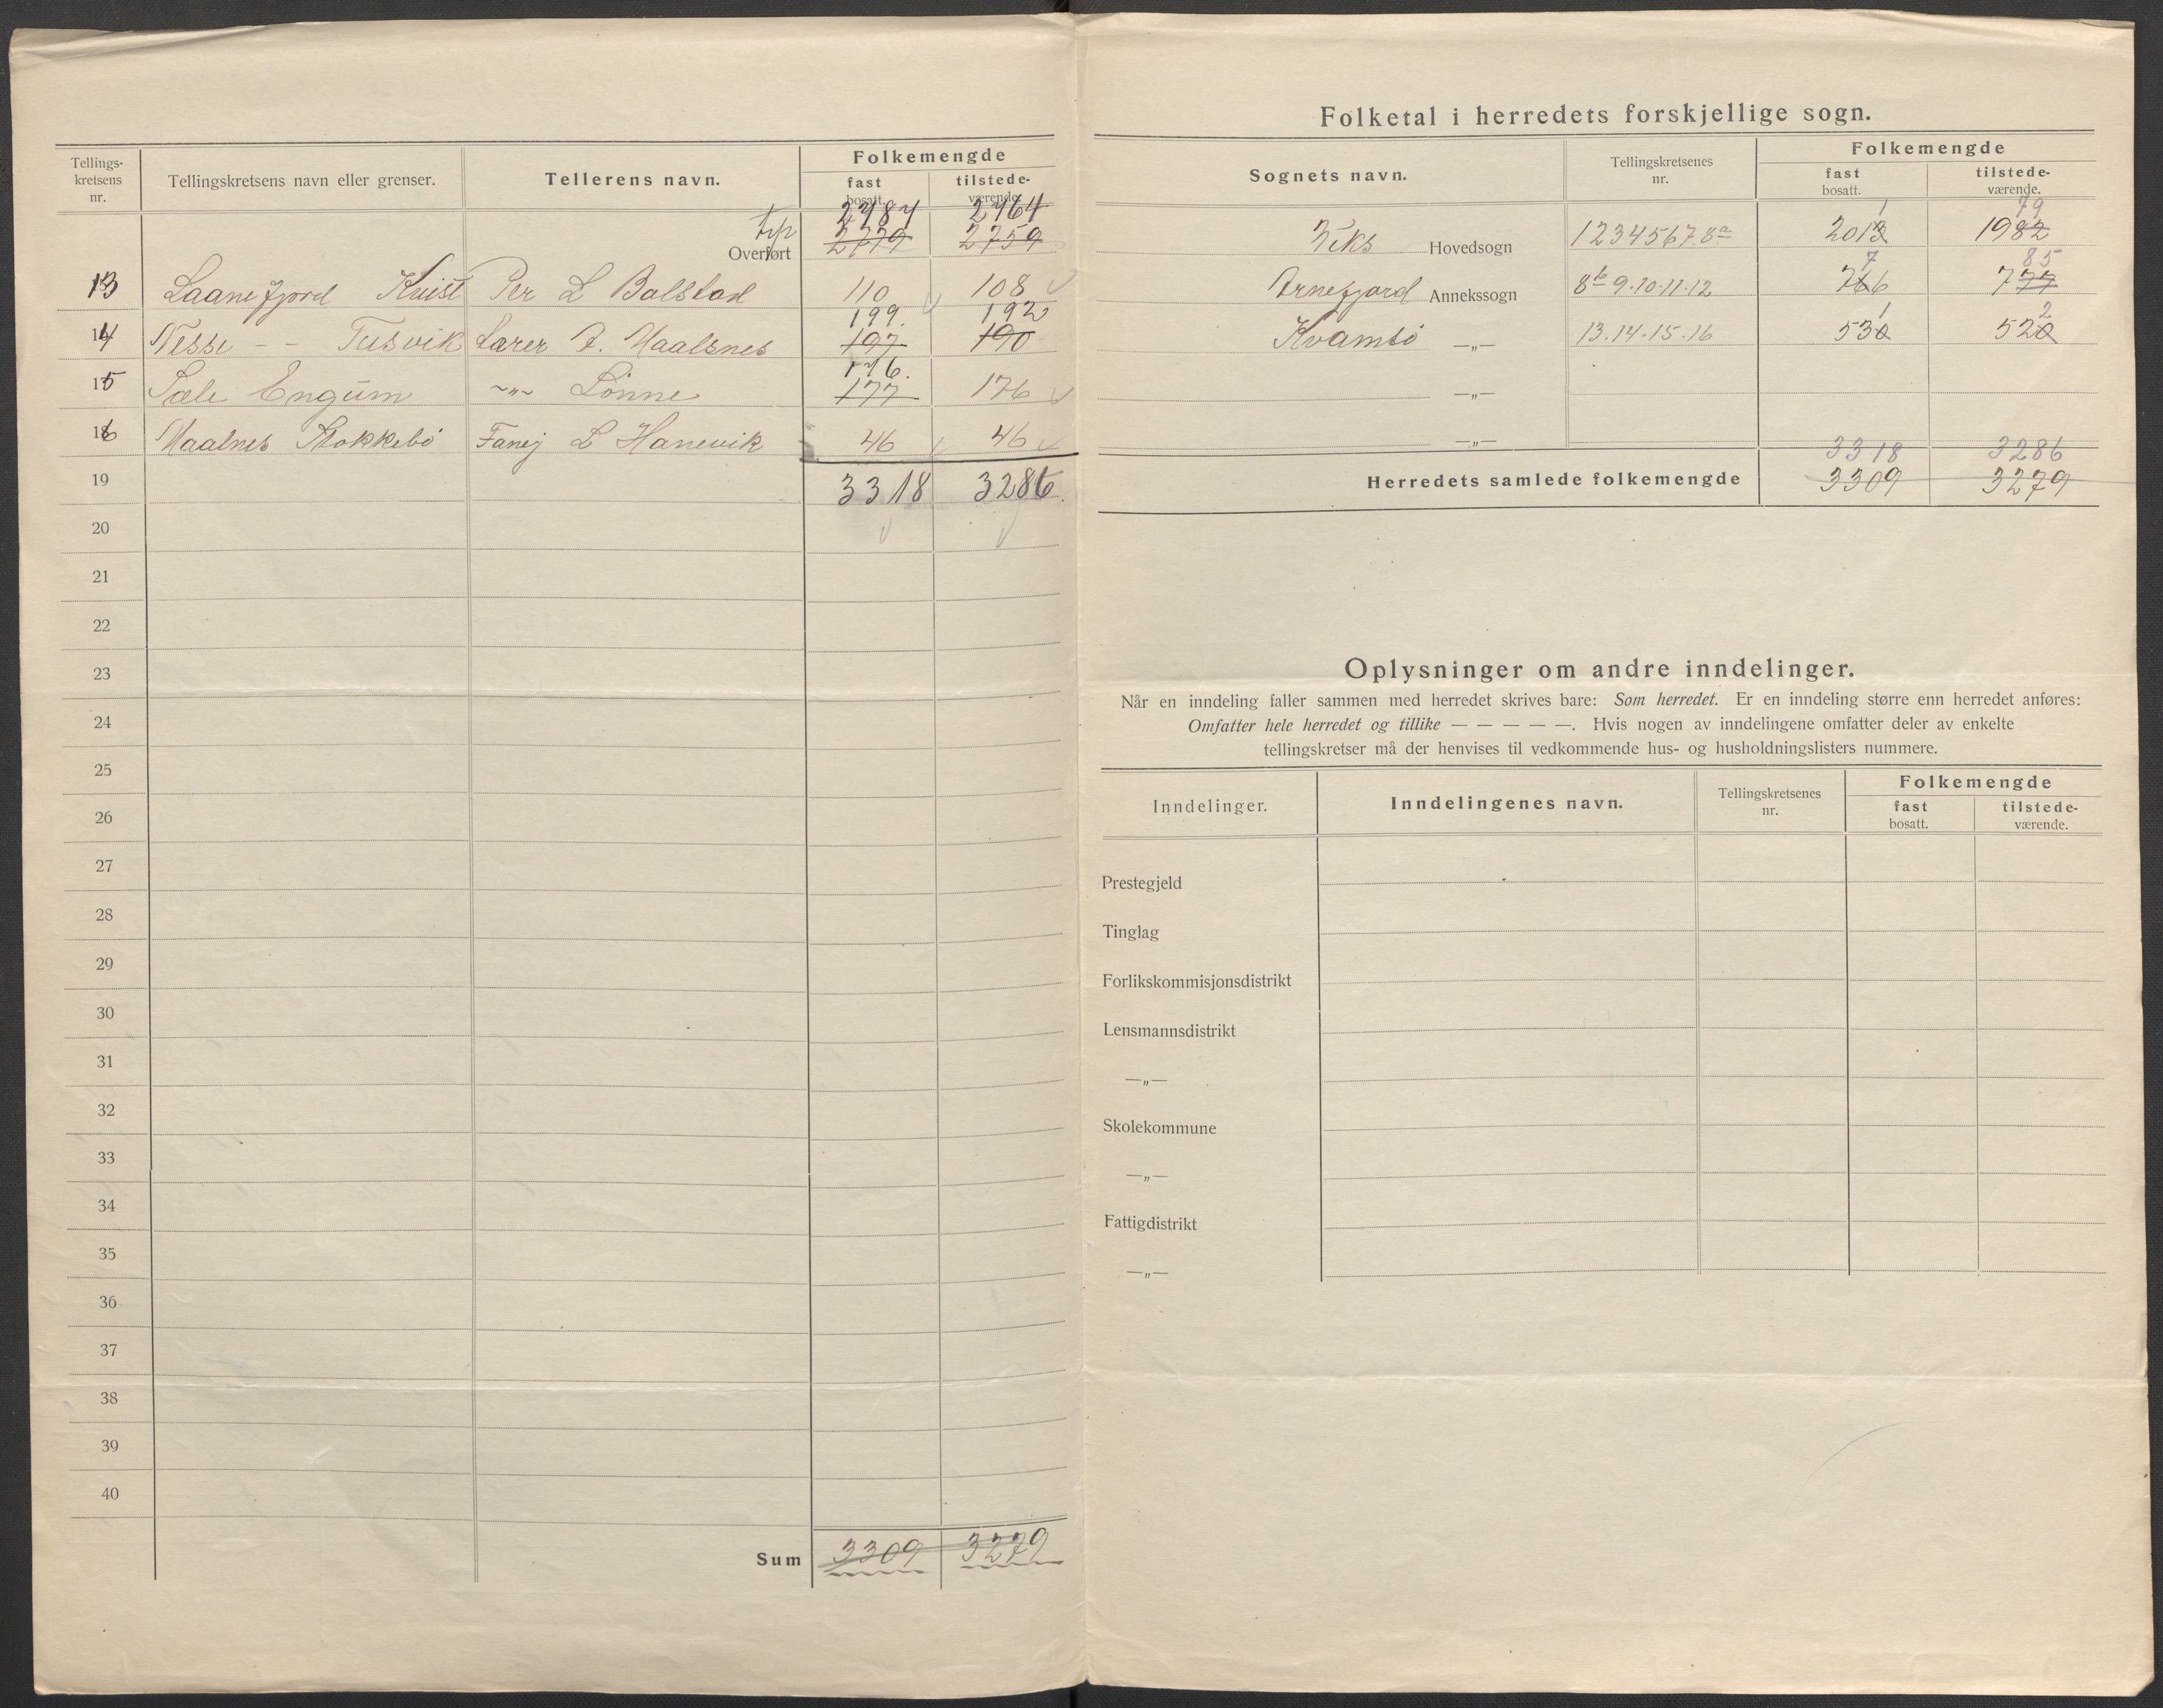 Tellings-
kretsens
nr.
Tellingskretsens navn eller grenser.
Tellerens navn.
Folkemengde
fast
bosatt.
tilstede-
værende.
2787 2764
Overført 2779 2759
13 Laanefjord Kvist Per L Bolstad 110 108
199. 192
14 Nesse - - Tusvik Lærer A. Maalsnes 197 190
176.
15 Sæle Engum -„- Lønne 177 176
16 Maalnes Stokkebø L Hanevik 46 46
19 3318 3286
20
21
22
23
24
25
26
27
28
29
30
31
32
33
34
35
36
37
38
39
40
Sum 3309 3279
Folketal i herredets forskjellige sogn.
Sognets navn.
Tellingskretsenes
nr.
Folkemengde
fast
bosatt.
tilstede-
værende.
1 79
Viks Hovedsogn 1 2 3 4 5 6 7 8a 2013 1982
7 85
Arnefjord Annekssogn 8b 9.10.11.12 766 777
1 2
Kvamsø —„— 13.14.15.16 530 520
—„—
—„—
3318 3286
Herredets samlede folkemengde 3309 3279
Oplysninger om andre inndelinger.
Når en inndeling faller sammen med herredet skrives bare: Som herredet. Er en inndeling større enn herredet anføres:
Omfatter hele herredet og tillike — — — — —. Hvis nogen av inndelingene omfatter deler av enkelte
tellingskretser må der henvises til vedkommende hus- og husholdningslisters nummere.
Inndelinger.
Inndelingenes navn.
Tellingskretsenes
nr.
Folkemengde
fast
bosatt.
tilstede-
værende.
Prestegjeld
Tinglag
Forlikskommisjonsdistrikt
Lensmannsdistrikt
—„—
Skolekommune
—„—
Fattigdistrikt
—„—